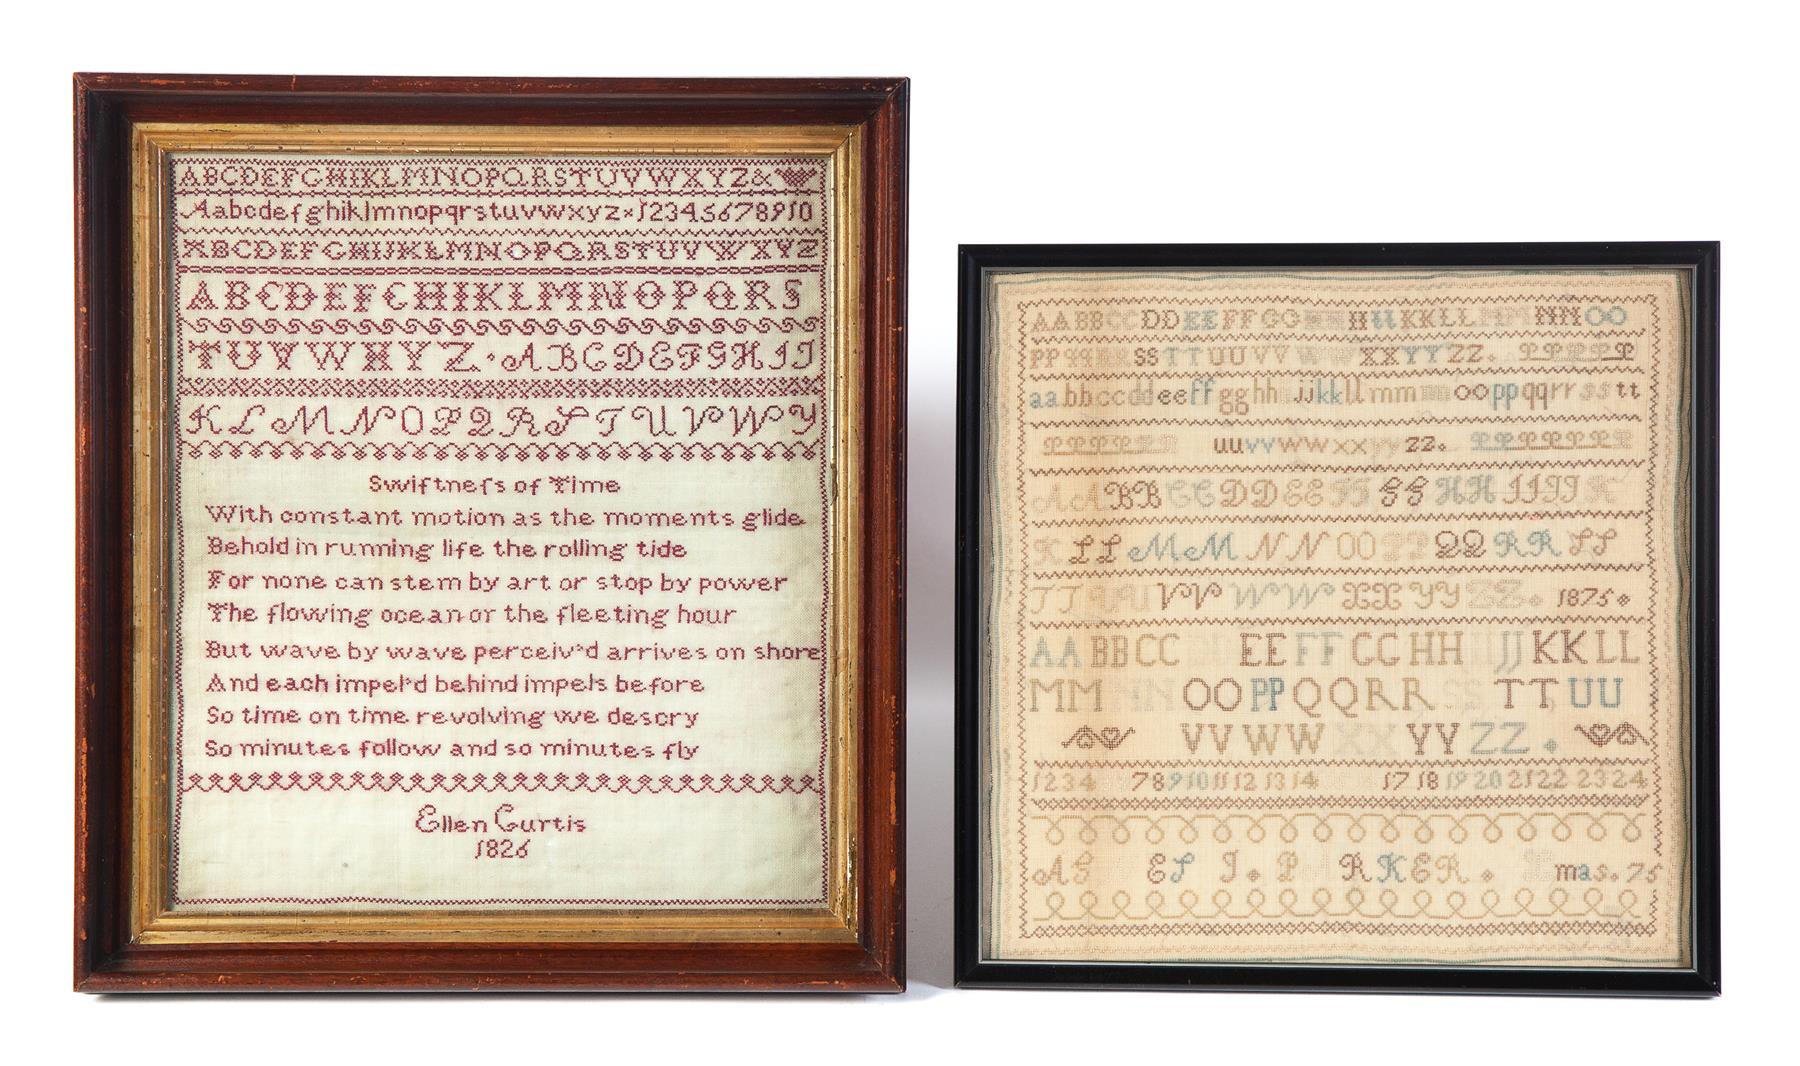 ABCDEFGHIKLMNOPQRSTUVWXYZ&
Aabcdefghiklmnopqrstuvwxyz×12345678910
ABCDEFGHIJKLMNOPQRSTUVWXYZ
ABCDEFGHIKLMNOPQRS
TUVWXYZ.ABCDEFGHIJ
KLMNOPQRSTUVWY
Swiftneſs of Time
With constant motion as the moments glide
Behold in running life the rolling tide
For none can stem by art or stop by power
The flowing ocean or the fleeting hour
But wave by wave perceiv'd arrives on shore
And each impel'd behind impels before
So time on time revolving we descry
So minutes follow and so minutes fly
Ellen Curtis
1826
AABBCCDDEEFFGGHHHIIKKLLMMNNOO
PPQQRRSSTTUUVVWWXXYYZZ.
aabbccddeeffgghhiijjkkllmmnnooppqqrrsstt
uuvvwwxxyyzz.
AABBCCDDEEFFGGHHIIJJK
KLLMMNNOOPPQQRRSS
TTUUVVWWXXYYZZ 1875
AABBCC EEFFGGHHIIJJKKLL
MMNNOOPPQQRRSSTTUU
VVWWXXYYZZ.
1234 7891011121314 1718192021222324
J. PARKER. mas. 75